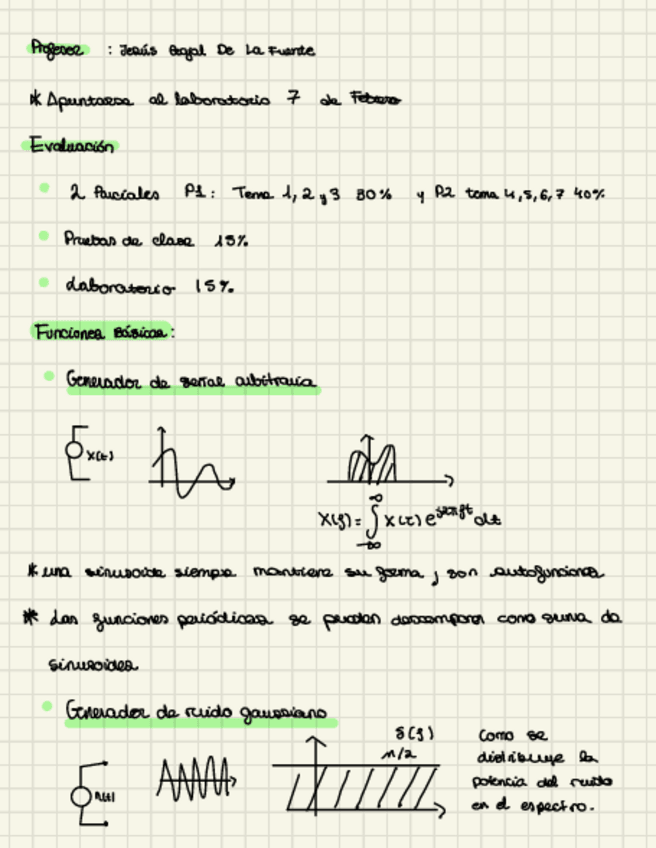 Profesor : Jesús Bogal De La Fuente
* Apuntarse al laboratorio 7 de Febrero
Evaluación
2 Parciales P1: Tema 1, 2 y 3 30% y P2 tema 4, 5, 6, 7 40%
Pruebas de clase 15%
Laboratorio 15%
Funciones Básicas:
Generador de señal arbitraria
x(t)
X(f) = ∫_{-∞}^{∞} x(τ) e^{j2πft} dt
* una sinusoide siempre mantiene su forma, son autofunciones
* Las funciones periódicas se pueden descomponer como suma de
sinusoides
Generador de ruido gaussiano
n(t)
S(f)
n/2
Como se
distribuye la
potencia del ruido
en el espectro.